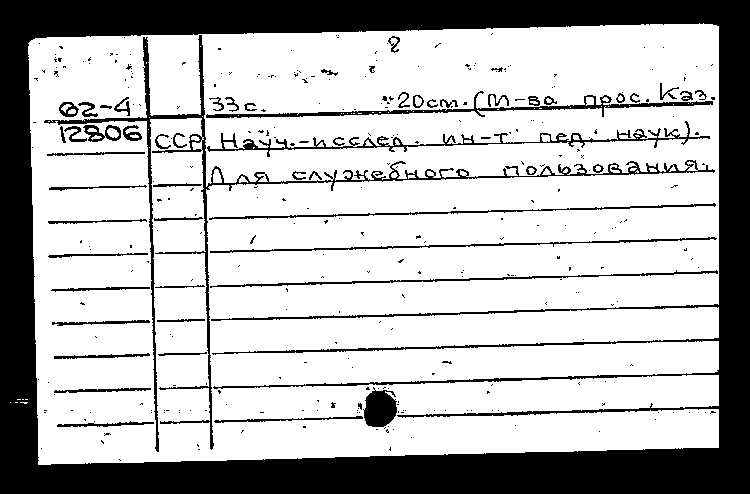 2
62-4 33с. 20см. (М-ва прос. Каз.
12806 ССР. Науч.-исслед. ин-т пед. наук).
Для служебного пользования.